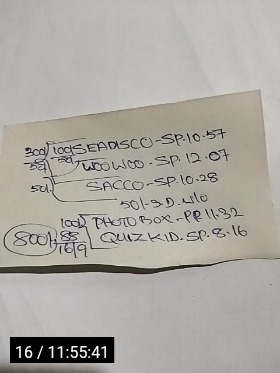 300/ 100/ SEADISCO - SP. 10.57
50/ 50/ WOOWOO - SP. 12.07
50/ SACCO - SP. 10.28
50/- 3.D. W/O
100/ PHOTO BOX - PR 11.32
800/- 88 QUIZKID. SP. 8.16
16/9
16 / 11:55:41